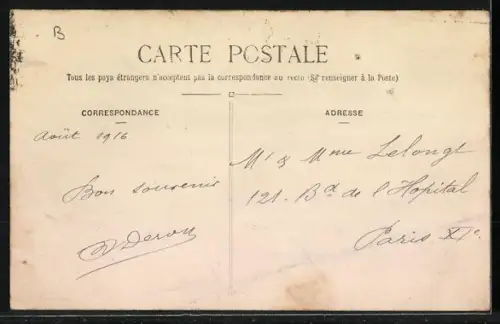 B
CARTE POSTALE
Tous les pays étrangers n'acceptent pas la correspondance au recto (Se renseigner à la Poste)
CORRESPONDANCE
Août 1916
Bon souvenir
ADRESSE
Mr & Mme Lelong
121. Bd de l'Hopital
Paris